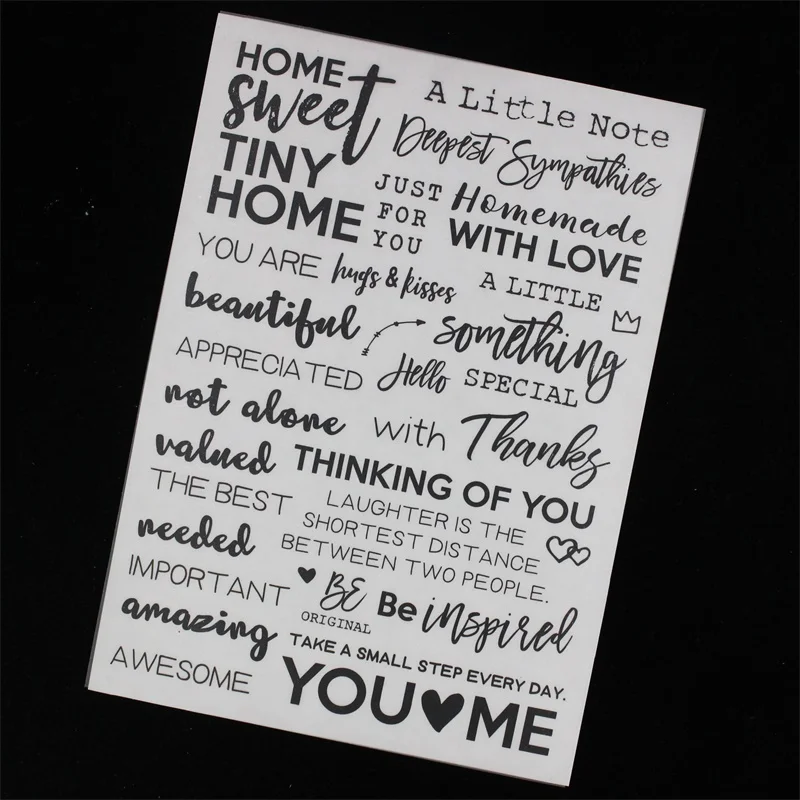 HOME
sweet
TINY
HOME
A Little Note
Deepest Sympathies
JUST
FOR
YOU
Homemade
WITH LOVE
YOU ARE
hugs & kisses
A LITTLE
beautiful
something
APPRECIATED
Hello
SPECIAL
not alone
with
Thanks
valued
THINKING OF YOU
THE BEST
LAUGHTER IS THE
SHORTEST DISTANCE
BETWEEN TWO PEOPLE.
needed
IMPORTANT
BE
ORIGINAL
Be inspired
amazing
TAKE A SMALL STEP EVERY DAY.
AWESOME
YOU♥ME